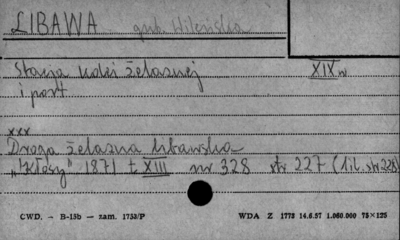 LIBAWA gub. Wileńska
Stacja kolei żelaznej XIX w.
i port
xxx
Droga żelazna libawska
„Kłosy” 1871 t XIII nr 328 str 227 (1 il. str 228)
CWD. — B-15b — zam. 1753/P WDA Z 1773 14.6.57 1.060.000 75×125